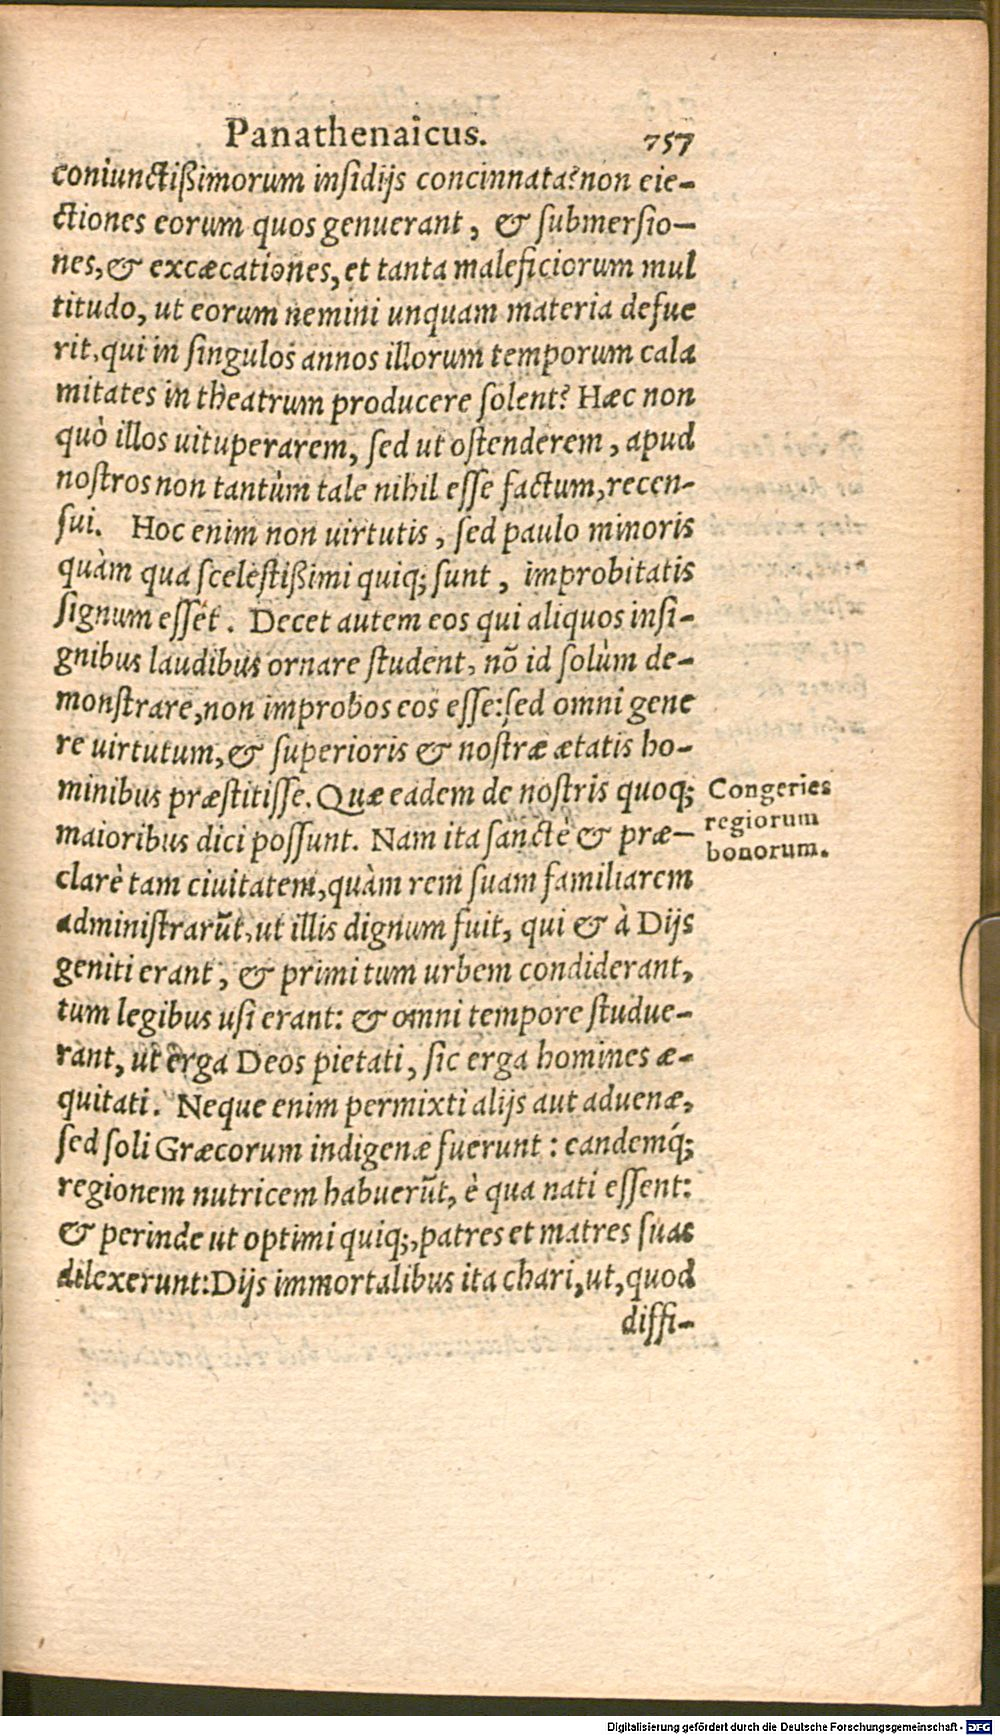 Panathenaicus. 757
coniunctißimorum insidijs concinnata? non eie-
ctiones eorum quos genuerant, & submersio-
nes, & excæcationes, et tanta maleficiorum mul
titudo, ut eorum nemini unquam materia defue
rit, qui in singulos annos illorum temporum cala
mitates in theatrum producere solent? Hæc non
quò illos uituperarem, sed ut ostenderem, apud
nostros non tantùm tale nihil esse factum, recen-
sui. Hoc enim non uirtutis, sed paulo minoris
quàm qua scelestißimi quiq; sunt, improbitatis
signum esset. Decet autem eos qui aliquos insi-
gnibus laudibus ornare student, nō id solùm de-
monstrare, non improbos eos esse: sed omni gene
re uirtutum, & superioris & nostræ ætatis ho-
minibus præstitisse. Quæ eadem de nostris quoq;
maioribus dici possunt. Nam ita sanctè & præ-
clarè tam ciuitatem, quàm rem suam familiarem
administrarūt, ut illis dignum fuit, qui & à Dijs
geniti erant, & primi tum urbem condiderant,
tum legibus usi erant: & omni tempore studue-
rant, ut erga Deos pietati, sic erga homines æ-
quitati. Neque enim permixti alijs aut aduenæ,
sed soli Græcorum indigenæ fuerunt: eandemq́;
regionem nutricem habuerūt, è qua nati essent:
& perinde ut optimi quiq;, patres et matres suas
dilexerunt: Dijs immortalibus ita chari, ut, quod
diffi-
Congeries
regiorum
bonorum.
Digitalisierung gefördert durch die Deutsche Forschungsgemeinschaft - DFG